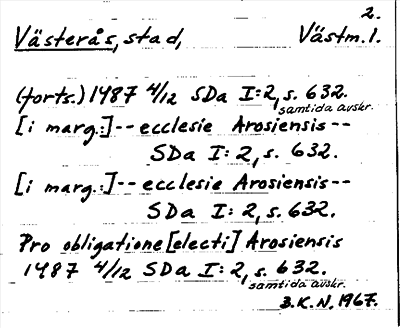 2.
Västerås, stad, Västm.l.
(forts.) 1487 4/12 SDa I:2, s. 632.
samtida avskr.
[i marg.:] -- ecclesie Arosiensis --
SDa I: 2, s. 632.
[i marg.:] -- ecclesie Arosiensis --
SDa I: 2, s. 632.
Pro obligatione [electi] Arosiensis
1487 4/12 SDa I: 2, s. 632.
samtida avskr.
B.K.N. 1967.